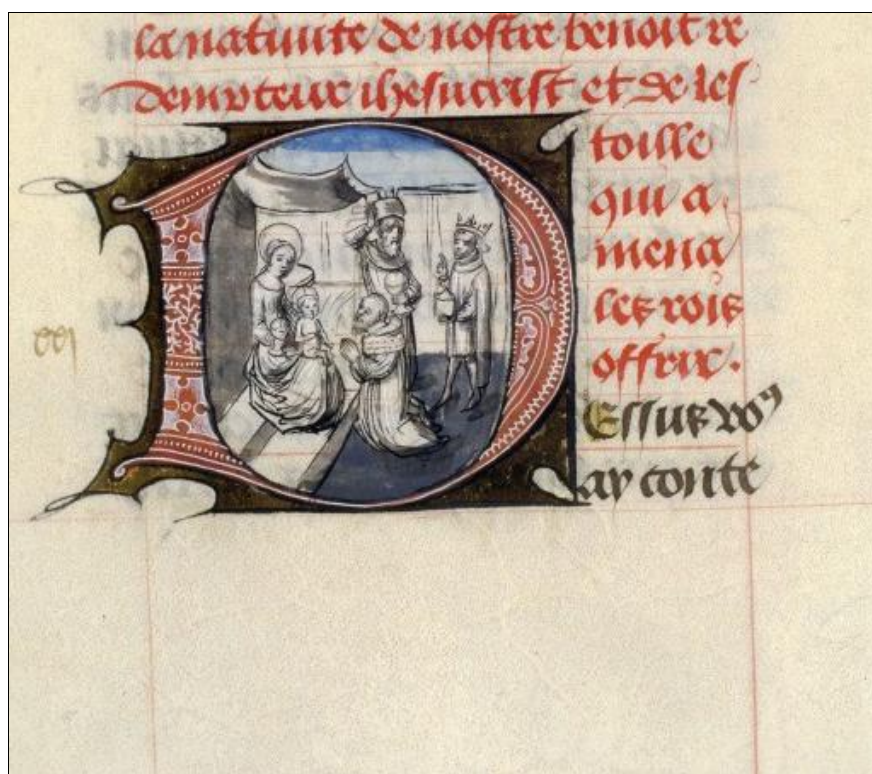 la natiuite de nostre benoit re
dempteur ihesucrist et de les
toille
qui a
mena
les rois
offrir.
Dessus vo9
ay conte